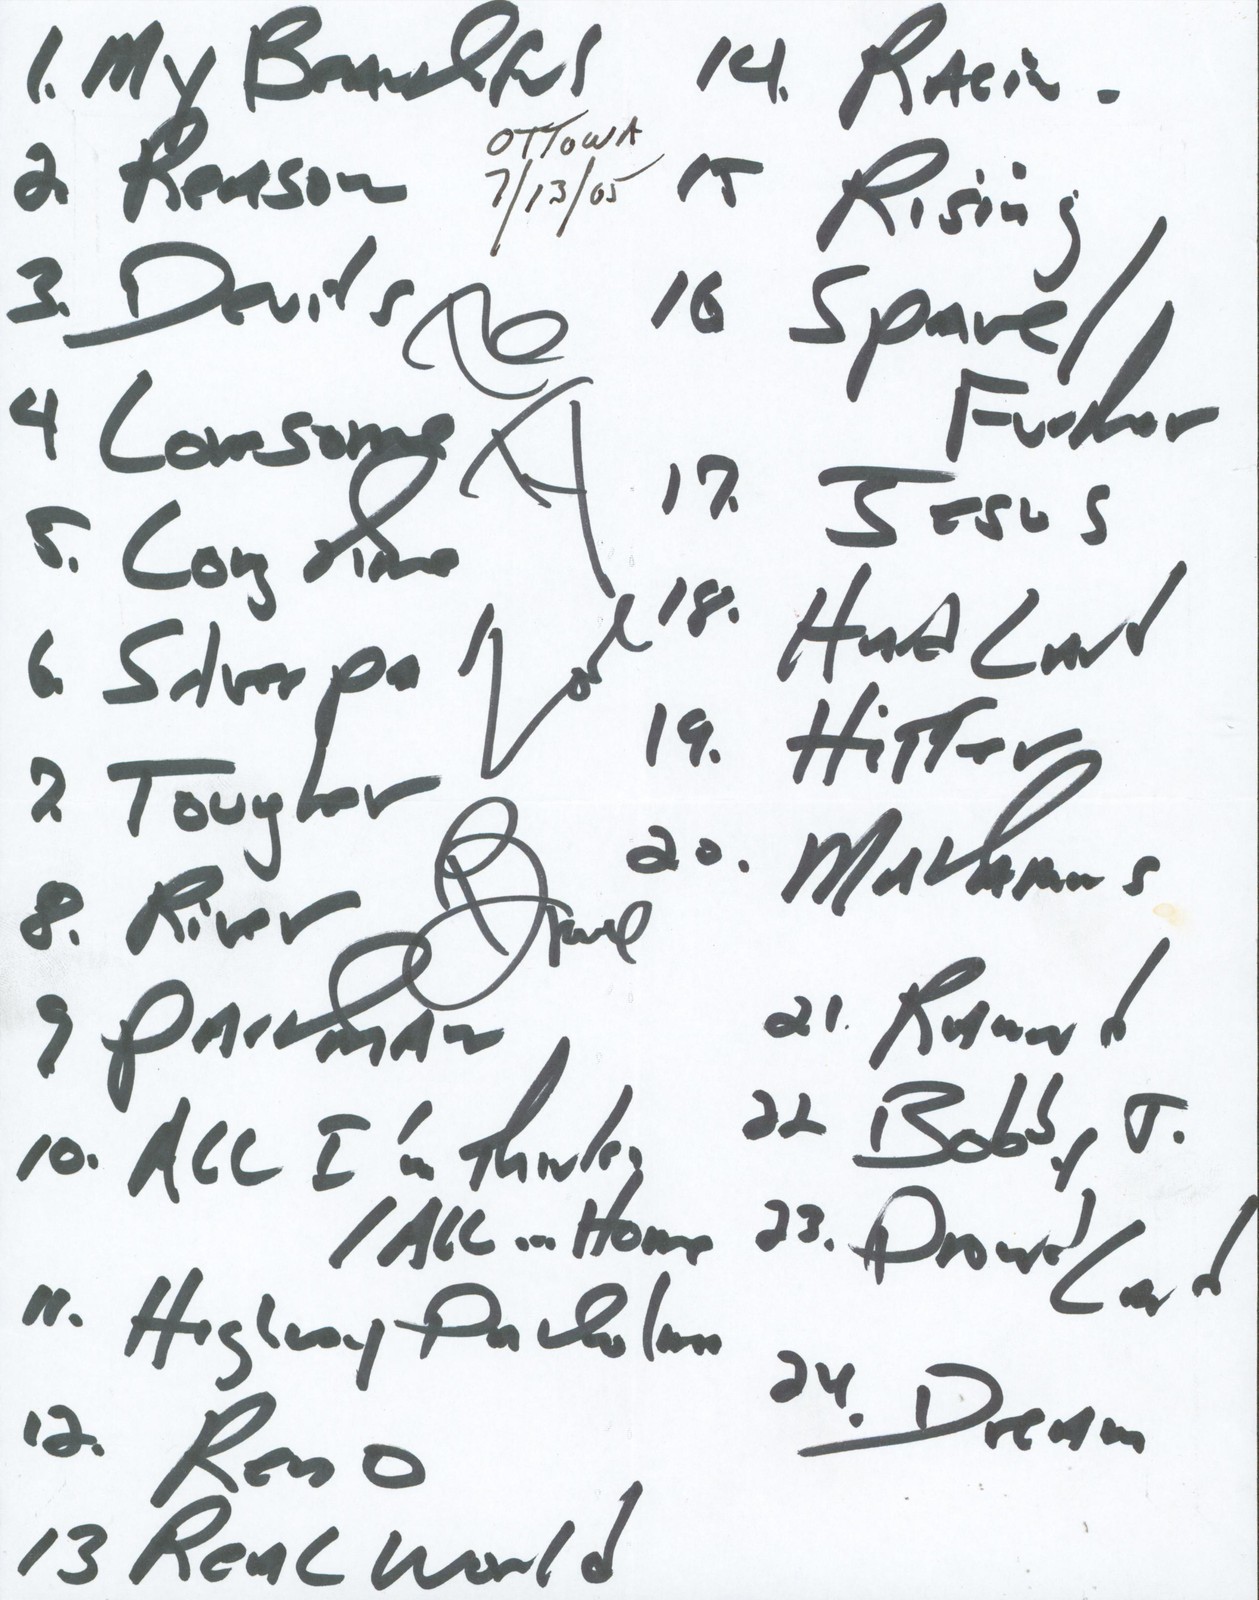 1. My Beautiful
2. Reason
OTTOWA
7/13/05
3. Devils
4 Lonesome
5. Long Time
6. Silver pa
7 Tougher
8. River
9 Part Man
10. ALL I'm Thinkg
/ALL ... Home
11. Highway Patrolman
12. Reno
13 Real World
14. Racin.
15 Rising
16 Spare/
Further
17. Jesus
18. Hard Land
19. Hitter
20. Matamoros
21. Ramrod
22 Bobby J.
23. Promised Land
24. Dream